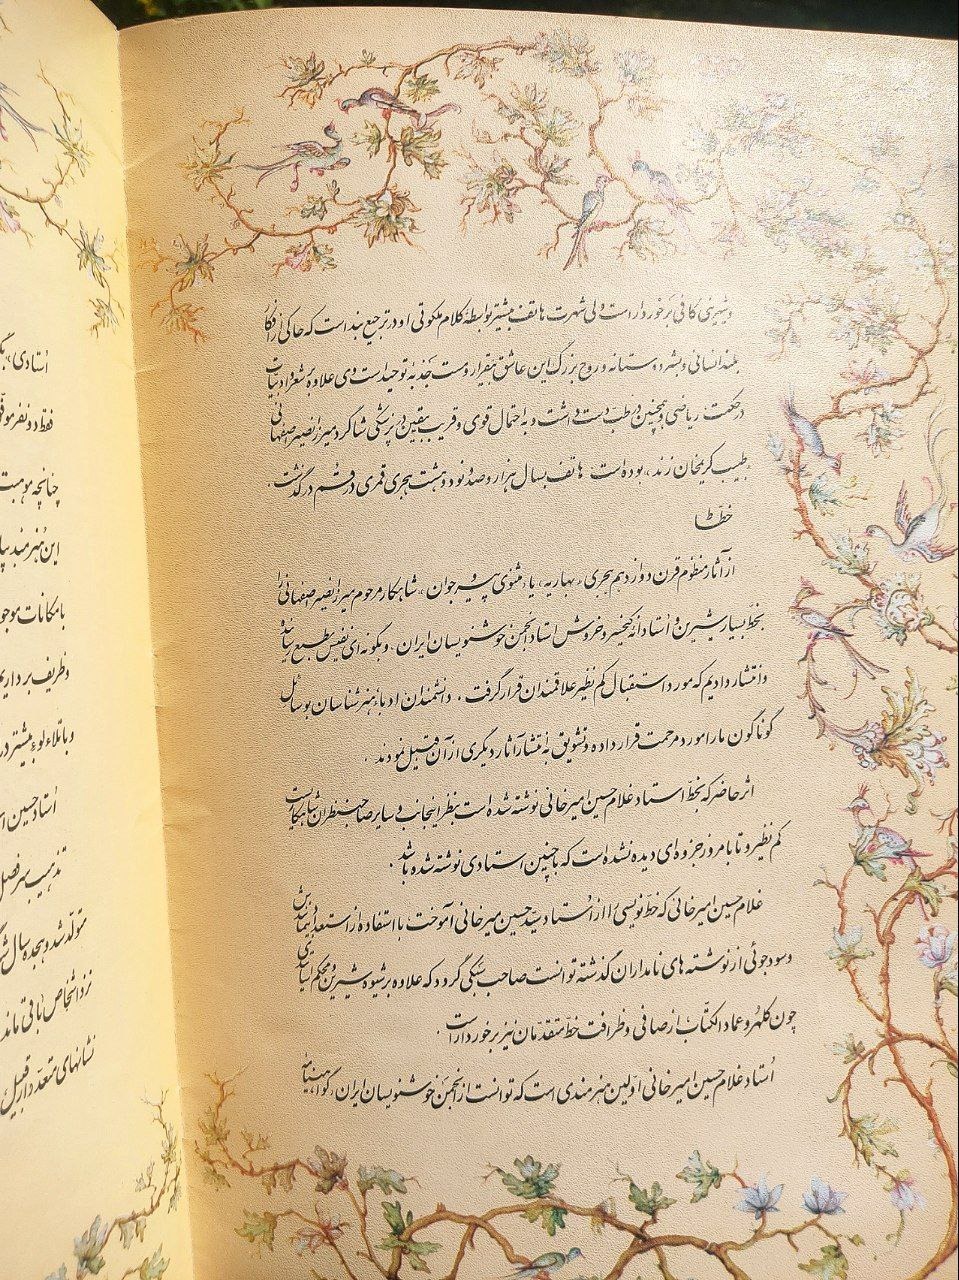 و شهری کافی برخوردار است ولی شهرت هاتف بیشتر بواسطهٔ کلام ملکوتی او در ترجیع بند است که حاکی از افکار
بلند انسانی و بشردوستانه و روح بزرگ این عاشق بیقرار و مست جذبهٔ توحید است وی علاوه بر شعر و ادبیات
در حکمت ریاضی و همچنین در طب دست داشت و به احتمال قوی و قریب بیقین در پزشکی شاگرد میرزا نصیر اصفهانی
طبیب کریمخان زند، بوده است هاتف بسال هزار و صد و نود و هشت هجری قمری در قم در گذشت.
خطاط
از آثار منظوم قرن دوازدهم هجری «بهاریه» یا «مثنوی پیر و جوان» شاهکار مرحوم میرزا نصیر اصفهانی را
بخط بسیار شیرین و استادانه کیخسرو خروش استاد انجمن خوشنویسان ایران، و بگونه‌ای نفیس بطبع رسانده
و انتشار دادیم که مورد استقبال کم نظیر علاقمندان قرار گرفت. دانشمندان ادبا و هنرشناسان بوسائل
گوناگون ما را مورد مرحمت قرار داده و تشویق به انتشار آثار دیگری از آن قبیل نمودند.
اثر حاضر که بخط استاد غلامحسین امیرخانی نوشته شده است بنظر اینجانب و سایر صاحب نظران شاهکاریست
کم نظیر و تا بامروز جزوه‌ای دیده نشده است که با چنین استادی نوشته شده باشد.
غلامحسین امیرخانی که خط نویسی را از استاد سید حسین میرخانی آموخت با استفاده از استعداد بیمانندش
و سودجوئی از نوشته های نامداران گذشته توانست صاحب سبکی گردد که علاوه بر شیوه شیرین و محکم اساتیدی
چون کلهر و عماد الکتاب از صافی و ظرافت خط متقدمان نیز برخوردار است.
استاد غلامحسین امیرخانی اولین هنرمندی است که توانست از انجمن خوشنویسان ایران گواهینامه
استادی،
فقط دو نفر موفق
چنانچه موهبت
این هنرمند
با مکانات موجود
و ظریف برداریم
و با تلاءلوء بیشتر در
استاد حسین
تذهیب سرفصل
متولد شد و هجده سال
نزد اشخاص باقی مانده
نشانهای متعدد از قبیل